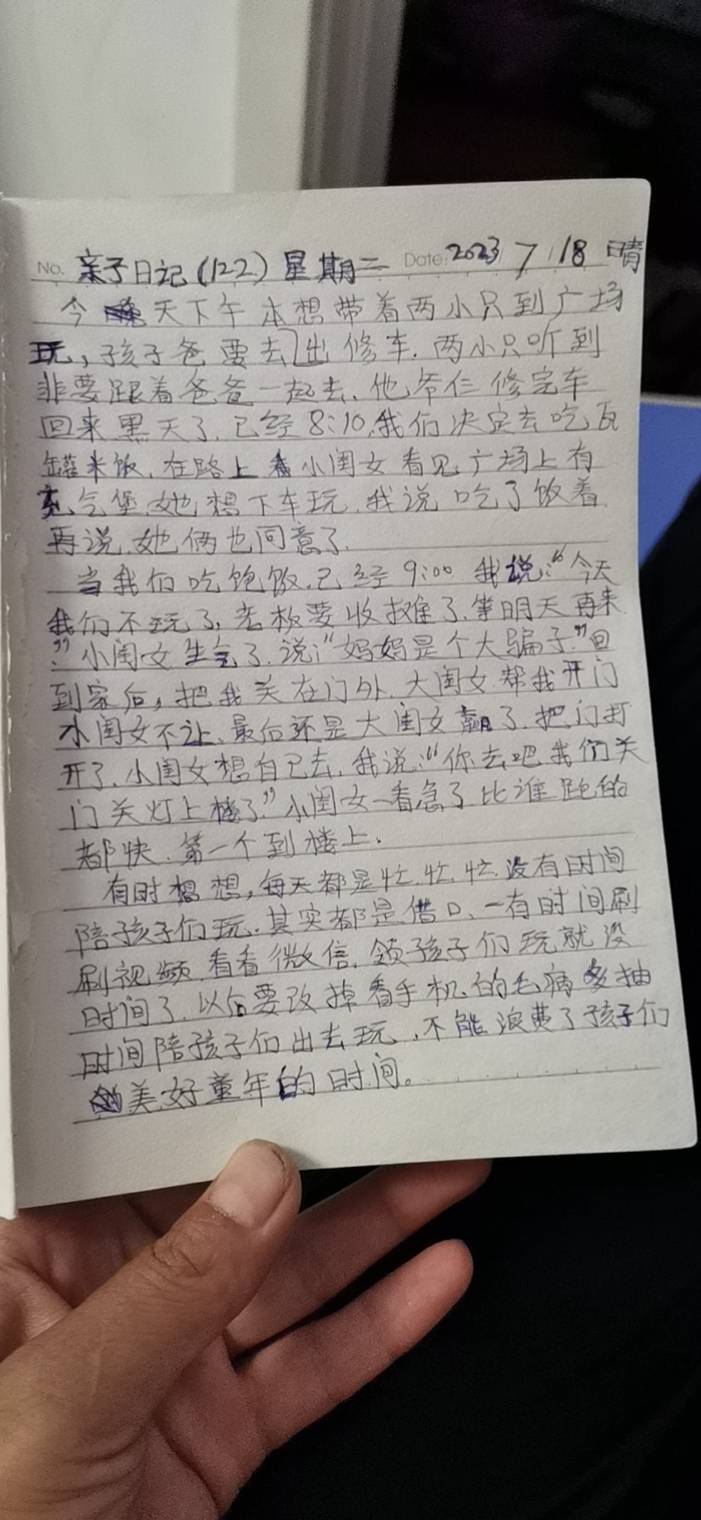 No. 亲子日记(122) 星期二 Date 2023 7 18 晴
今天下午本想带着两小只到广场
玩,孩子爸要去出修车.两小只听到
非要跟着爸爸一起去.他爷仨修完车
回来黑天了.已经8:10.我们决定去吃瓦
罐米饭.在路上小闺女看见广场上有
充气堡她想下车玩.我说吃了饭着
再说.她俩也同意了.
当我们吃饱饭.已经9:00 我说:“今天
我们不玩了,老板要收摊了.等明天再来
.”小闺女生气了.说:“妈妈是个大骗子.”回
到家后,把我关在门外.大闺女帮我开门
小闺女不让、最后还是大闺女赢了.把门打
开了.小闺女想自己去.我说:“你去吧我们关
门关灯上楼了”小闺女一看急了.比谁跑的
都快.第一个到楼上.
有时想想,每天都是忙.忙.忙.没有时间
陪孩子们玩.其实都是借口.一有时间刷
刷视频.看看微信.领孩子们玩就没
时间了.以后要改掉看手机的毛病多抽
时间陪孩子们出去玩,不能浪费了孩子们
美好童年的时间。